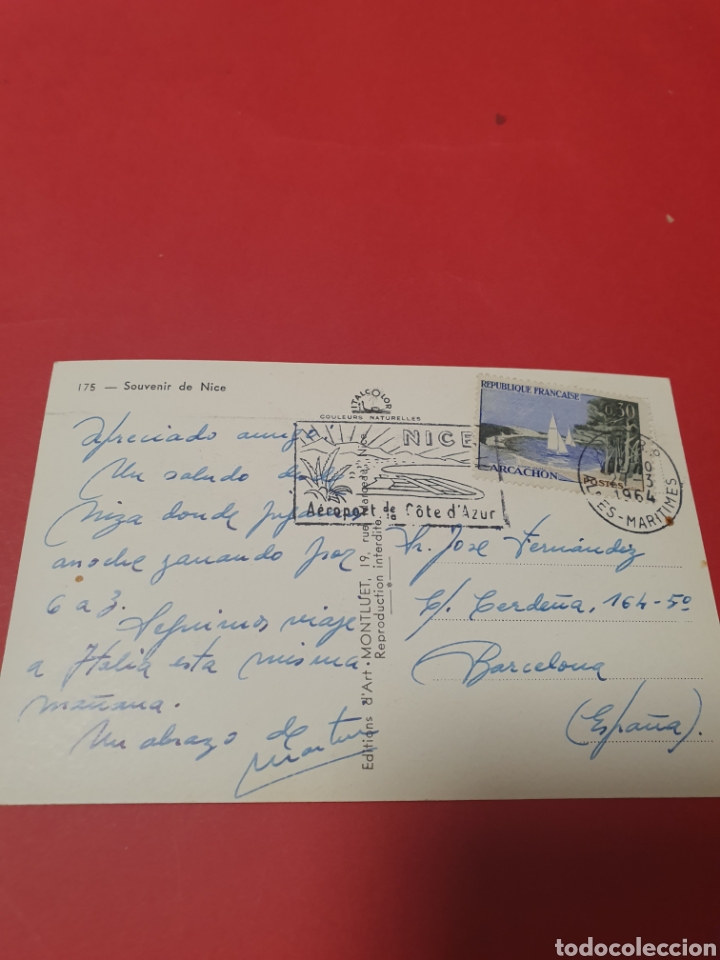 175 — Souvenir de Nice
ITALCOLOR
COULEURS NATURELLES
Apreciado amigo
Un saludo desde
Niza donde jugamos
anoche ganando por
6 a 3.
Seguimos viaje
a Italia esta misma
mañana.
Un abrazo de
NICE
Aéroport de la Côte d'Azur
REPUBLIQUE FRANÇAISE
0,30
ARCACHON
POSTES
1964
ES-MARITIMES
Editions d'Art • MONTLUET, 19, rue
Reproduction interdite
Sr. Jose Fernández
C/. Cerdeña, 164-5º
Barcelona
(España).
todocoleccion